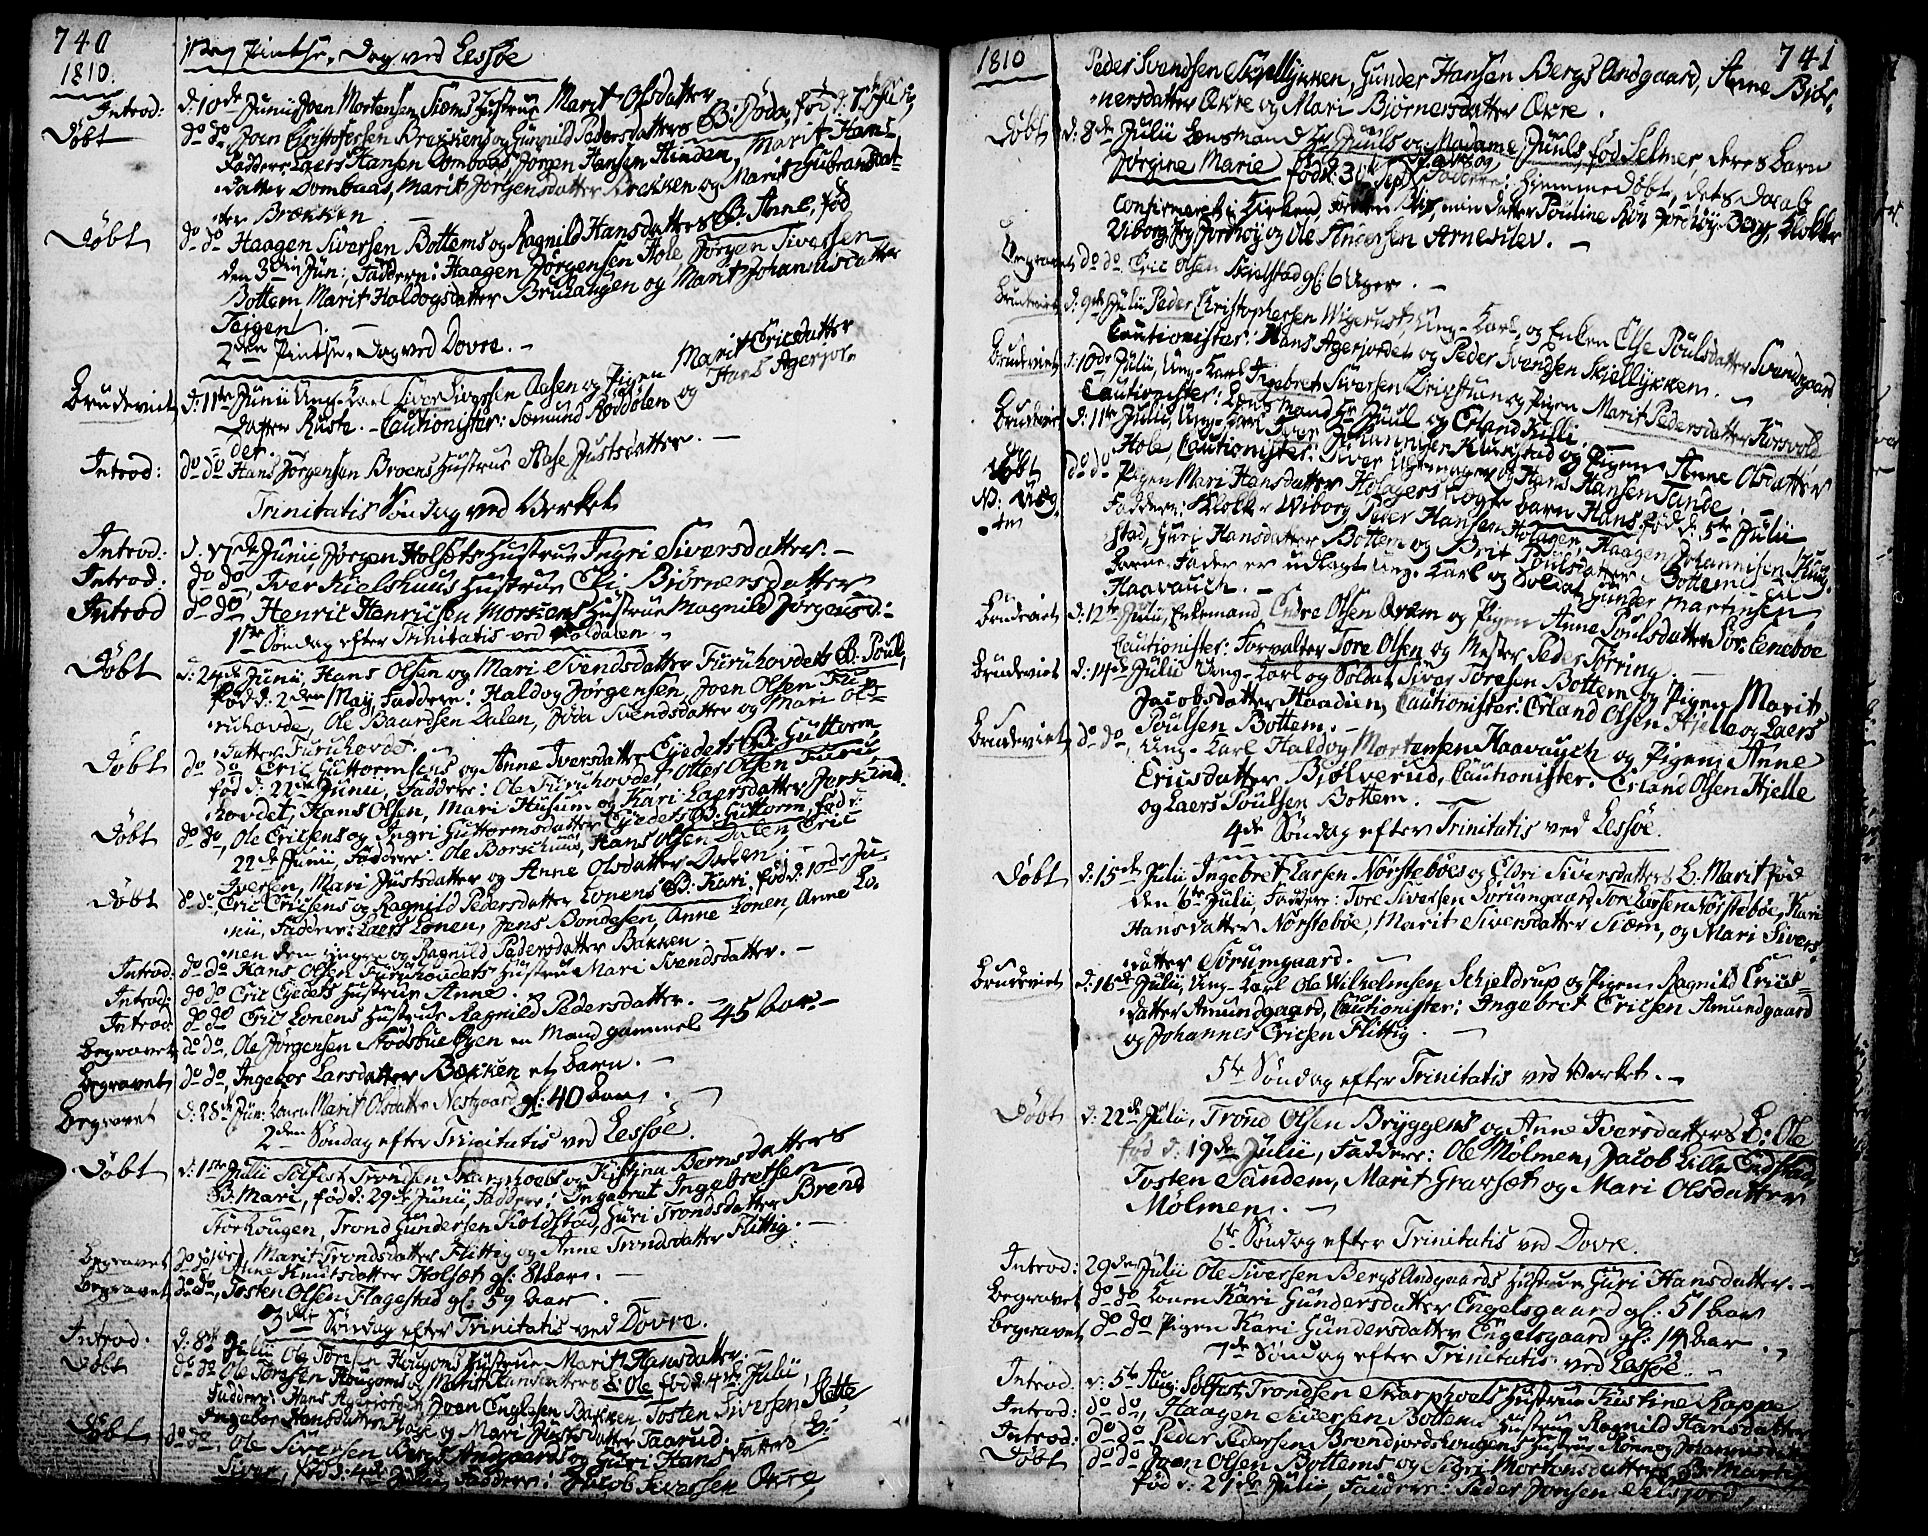 740
1810.
1ste Pintse-Dag ved Lessøe
Introd: d: 10de Junii Joen Mortensen Siems Hustrue Marit Olsdatter
Døbt do do Joen Christofersen Brekkens og Gunnild Pedersdatters B: Joda, fød d: 7de
Faddere: Laers Hansen Dombaas, Jørgen Hansen Hinden, Marit Hans-
datter Dombaas, Marit Jørgensdatter Brekken og Marit Gubransdat-
ter Brækken
Døbt do do Haagen Siversen Bottems og Ragnild Hansdatters B. Anne, fød
den 3die Jun:, Faddere: Haagen Jørgensen Hole, Jørgen Siversen
Bottem, Marit Haldogsdatter Bruuangen og Marit Johannisdatter
Teigen. —
2den Pintse-Dag ved Dovre. —
Brudeviet, d: 11te Junii Ung-Karl Siver Siversen Aasen og Pigen Marit Ericsdatter
datter Ruste. - Cautionister: Semund Roddølen og Hans Agerjor-
der.
Introd: do do Hans Jørgensen Broens Hustrue Aase Justsdatter. —
Trinitatis Søndag ved Verket
Introd: d. 17de Junii, Jørgen Holsets Hustrue Ingri Siversdatter. —
Introd. do do, Iver Kielshuus Hustrue Eli Bjørnersdatter
Introd do do, Henric Henricsen Morkens Hustrue Magnild Jørgensd:
1ste Søndag efter Trinitatis ved
Døbt d: 24de Junii, Hans Olsen og Mari Svendsdatter Furuhovdets B: Poul,
fød d: 2den May, Faddere: Haldog Jørgensen, Joen Olsen Fu-
ruhovde, Ole Baardsen Dalen, Joda Svendsdatter og Mari Ols-
datter Furuhovdet.
Døbt do do Eric Guttormsens og Anne Iversdatter Ejedets B: Guttorm,
fød d: 22de Junii, Faddere: Ole Furuhovdet, Otter Olsen Furu-
hovdet, Hans Olsen, Mari Husum og Kari Laersdatter
Døbt do do, Ole Ericsens og Ingri Guttormsdatter Ejedets B: Guttorm, fød d:
22de Junii, Faddere: Ole Borsehuus, Hans Olsen Dalen, Eric
Iversen, Mari Justsdatter og Anne Olsdatter Dalen.
Døbt do do, Eric Ericsens og Ragnild Pedersdatter Lonens B: Kari, fød d: 10de Ju-
nii, Faddere: Laers Lonen, Jens Bondesen, Anne Lonen, Anne Lo-
nen den yngre og Ragnild Pedersdatter Bakken.
Introd: do do Hans Olsen Furuhovdets Hustrue Mari Svendsdatter. —
Introd: do do Eric Ejedets Hustrue Anne.
Introd do do Eric Lonens Hustrue Ragnild Pedersdatter.
Begravet, do do, Ole Jørgensen en Mand gammel 45 Aar. —
Begravet, do do, Ingebor Larsdatter Bækken et Barn. —
Begravet d: 28de Jun: Konen Marit Olsdatter Nestgaard gl: 40 Aar.
2den Søndag efter Trinitatis ved Lessøe.
Døbt d: 1ste Julii Solfest Trondsen Skarphoels og Kistina Bernsdatters
B: Mari, fød d: 29de Junii, Faddere: Ingebrut Ingebretsen
Storhougen, Trond Gundersen Koldstad, Guri Trondsdatter Brend
jord, Marit Trondsdatter Flittig og Anne Trondsdatter Flittig. —
Begravet do do, Anne Knutsdatter Holset gl: 81 Aar. —
Begravet do do, Tosten Olsen Flagestad gl: 59 Aar.
3die Søndag efter Trinitatis ved Dovre.
Introd. d: 8de Julii Ole Torsten Hougoms Hustrue Marit Hansdatter. —
Døbt do do Ole Torstens Hougoms og Marit Hansdatters B: Ole fød d: 4de Julii,
Faddere: Hans Agerjordet, Joen Englesen Bakken, Tosten Siversen Slette
Ingebor Hansdatter Hole og Mari Justsdatter Taarud.
Døbt do do, Ole Siversen Bergs Andgaards og Guri Hansdatters B:
Siver, fød d: 4de Julii, Faddere: Jacob Siversen Økre,
1810
741
Peder Svendsen Skjellykken, Gunder Hansen Bergs Andgaard, Anne Bjør-
nersdatter Økre og Mari Bjørnersdatter Økre.
Døbt d: 8de Julii Lensmand Hr Juuls og Madame Juuls, fød Selmer, deres Barn
Jørgine Marie fød d: 31te Faddere: Hjemmedøbt, dets Daab
Confirmeret i Kirken, min Datter Pouline Berg, Klokker
Wiborg, og Ole Andersen
Begravet do do Eric Olsen Skjelstad gl: 6 Uger. —
Brudeviet d: 9de Julii Peder Christophersen Wigerust Ung-Karl, og Enken Else Poulsdatter Svendgaard
Cautionister: Hans Agerjordet og Peder Svendsen Skjellykken.
Brudeviet d: 10de Julii, Ung-Karl Ingebret Siversen og Pigen Marit Pedersdatter Korsvold
Cautionister: Lensmand Hr Juul og Erland Killi.
Brudeviet d: 11te Julii, Ung-Karl og Pigen Anne Olsdatter
Hole, Cautionister: Siver og Hans Hansen Sande.
Døbt do do Pigen Mari Hansdatter Holagers uægte Barn Hans fød d: 5te Julii
NB: Uæg-
ten
Faddere: Klokker Wiborg, Peder Hansen Holagen, Haagen Johannisen
stad, Guri Hansdatter Bottem og Brit Poulsdatter Bottem.
Barne-Fader er udlagt Ung-Karl og Soldat Gunder Martinsen
Haavauch. —
Brudeviet d: 12te Julii, Enkemand Endre Olsen Øram og Pigen Anne Poulsdatter
Cautionister: Forvalter Tore Olsen og Mester Peder Tørring.
Brudeviet d: 14de Julii Ung-Karl og Soldat Siver Toresen Bottem og Pigen Marit
Jacobsdatter Haadien, Cautionister: Erland Olsen Hjelle og Laers
Poulsen Bottem. —
Brudeviet, do do, Ung-Karl Haldog Mortensen Haavauch og Pigen Anne
Ericsdatter Bjølverud, Cautionister: Erland Olsen Hjelle
og Laers Poulsen Bottem. —
4de Søndag efter Trinitatis ved Lessøe.
Døbt d: 15de Julii Ingebret Larsen Nørstebøes og Eldri Siversdatters B. Marit fød
den 6te Julii, Faddere: Tore Siversen Sørumgaard, Tor Larsen Nørstebøe, Kari
Hansdatter Nørstebøe, Marit Siversdatter Siem, og Mari Sivers-
datter Sørumgaard.
Brudeviet, d: 16de Julii, Ung-Karl Ole Wilhelmsen Schjeldrup og Pigen Ragnild Erics-
datter Amundgaard, Cautionister: Ingebret Ericsen Amundgaard
og Johannes Ericsen Flittig. —
5te Søndag efter Trinitatis ved Verket. —
Døbt d: 22de Julii, Trond Olsen Bryggens og Anne Iversdatters B: Ole
fød d. 19de Julii, Faddere: Ole Mølmen, Jacob Lille
Tosten Sandem, Marit Grarset og Mari Olsdatter
Mølmen. —
6te Søndag efter Trinitatis ved Dovre.
Introd: 29de Julii Ole Siversen Bergs Andgaards Hustrue Guri Hansdatter. —
Begravet do do Konen Kari Gundersdatter Engelsgaard gl: 51 Aar
Begravet do do Pigen Kari Gundersdatter Engelsgaard gl: 14 Aar.
7de Søndag efter Trinitatis ved Lessøe.
Introd: d. 5te Aug: Solfest Trondsen Skarphoels Hustrue Kistine
Introd: do do, Haagen Siversen Bottems Hustrue Ragnild Hansdatter
Introd: do do, Peder Pedersen Brendjordshougens Hustrue Rønnog Johannisdatter
Døbt do do Joen Olsen Bottems og Sigri Mortensdatters B: Marit
fød d: 21de Julii, Faddere: Peder Jonsen